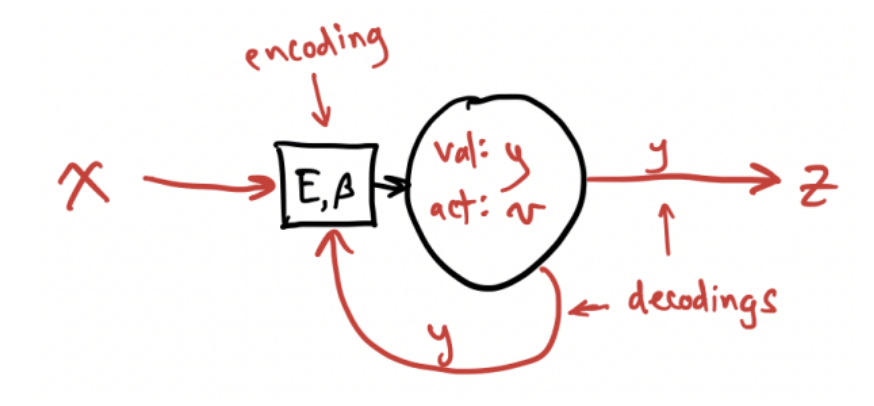 encoding
X
E, β
val: y
act: v
y
z
decodings
y